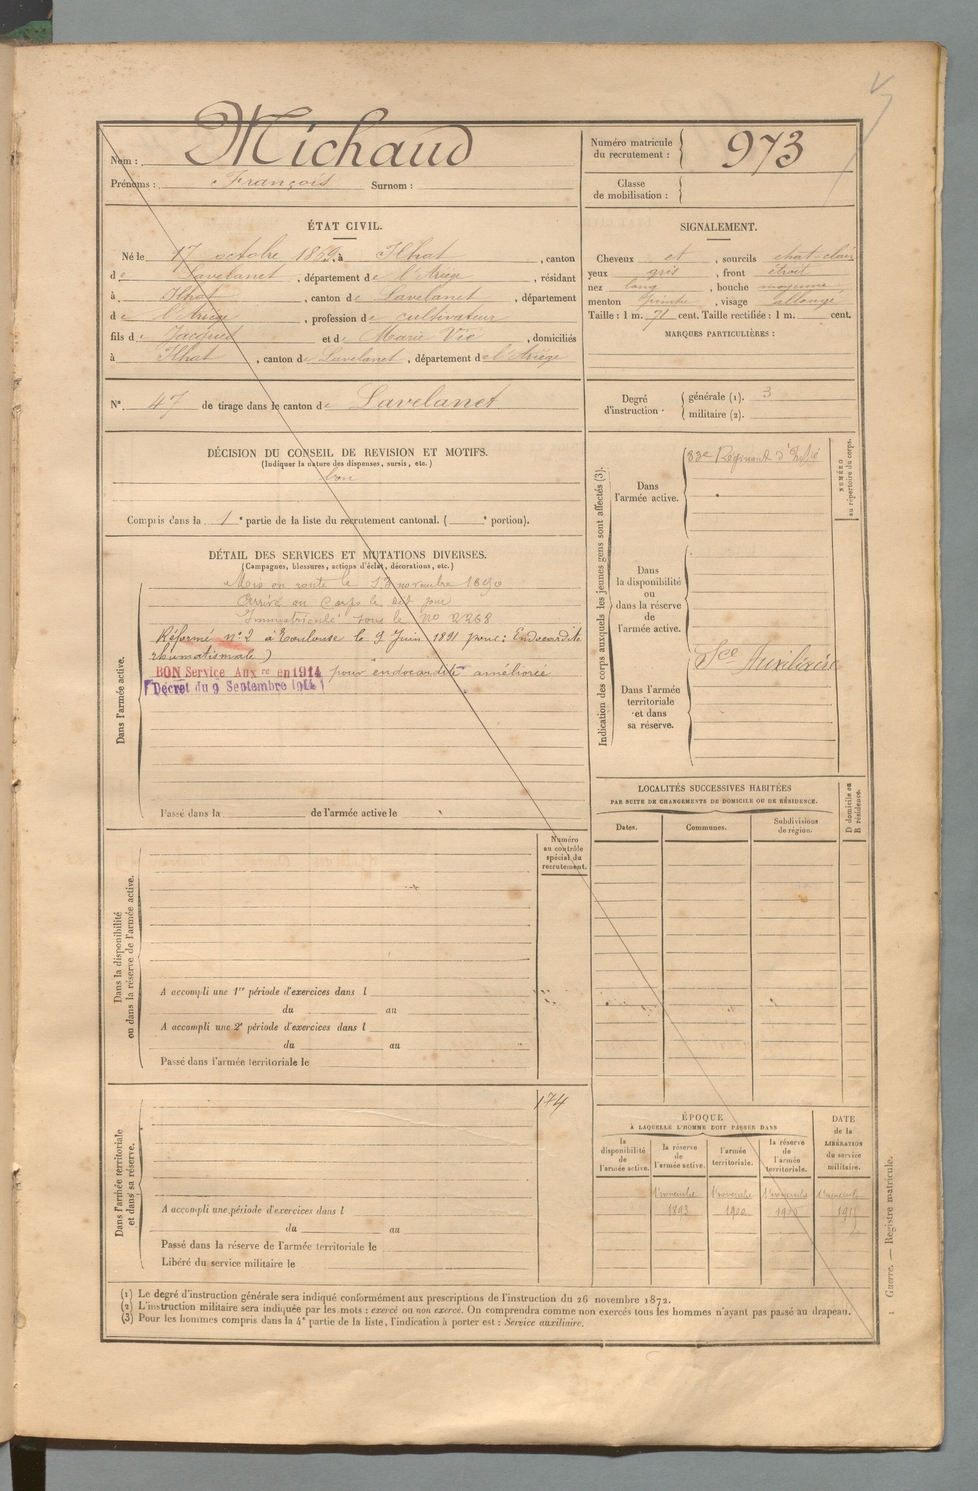 Nom : Michaud
Prénoms : François Surnom :
Numéro matricule du recrutement : 973
Classe de mobilisation :
ÉTAT CIVIL.
Né le 17 octobre 1869, à Ilhat, canton
de Lavelanet, département de l'Ariège, résidant
à Ilhat, canton de Lavelanet, département
de l'Ariège, profession de cultivateur
fils de Jacques et de Marie Vié, domiciliés
à Ilhat, canton de Lavelanet, département de l'Ariège
SIGNALEMENT.
Cheveux et, sourcils chat-clair
yeux gris, front étroit
nez long, bouche moyenne
menton pointu, visage allongé
Taille : 1 m. 71 cent. Taille rectifiée : 1 m. cent.
MARQUES PARTICULIÈRES :
N° 47 de tirage dans le canton de Lavelanet
Degré d'instruction
générale (1). 3
militaire (2).
DÉCISION DU CONSEIL DE REVISION ET MOTIFS.
(Indiquer la nature des dispenses, sursis, etc.)
bon
Compris dans la 1e partie de la liste du recrutement cantonal. ( e portion).
DÉTAIL DES SERVICES ET MUTATIONS DIVERSES.
(Campagnes, blessures, actions d'éclat, décorations, etc.)
Dans l'armée active.
Mis en route le novembre 1890
Arrivé au Corps le dit jour
Immatriculé sous le No 2268
Réformé n° 2 à Toulouse le 9 Juin 1891 pour : Endocardite
rhumatismale)
BON Service Auxre en 1914 pour endocardite améliorée
(Décret du 9 Septembre 1914)
Passé dans la de l'armée active le
Indication des corps auxquels les jeunes gens sont affectés (3).
NUMÉRO au répertoire du corps.
Dans l'armée active.
83e Régiment d'Inf ie
Dans la disponibilité ou dans la réserve de l'armée active.
Dans l'armée territoriale et dans sa réserve.
Sce Auxiliaire
LOCALITÉS SUCCESSIVES HABITÉES
PAR SUITE DE CHANGEMENTS DE DOMICILE OU DE RÉSIDENCE.
Dates. Communes. Subdivisions de région. D domicile ou R résidence.
Numéro au contrôle spécial du recrutement.
Dans la disponibilité ou dans la réserve de l'armée active.
A accompli une 1re période d'exercices dans l
du au
A accompli une 2e période d'exercices dans l
du au
Passé dans l'armée territoriale le
174
Dans l'armée territoriale et dans sa réserve.
A accompli une période d'exercices dans l
du au
Passé dans la réserve de l'armée territoriale le
Libéré du service militaire le
ÉPOQUE
À LAQUELLE L'HOMME DOIT PASSER DANS
la disponibilité de l'armée active.
la réserve de l'armée active.
l'armée territoriale.
la réserve de l'armée territoriale.
DATE de la LIBÉRATION du service militaire.
1 novembre 1 novembre 1 novembre 1 novembre
1893 1900
(1) Le degré d'instruction générale sera indiqué conformément aux prescriptions de l'instruction du 26 novembre 1872.
(2) L'instruction militaire sera indiquée par les mots : exercé ou non exercé. On comprendra comme non exercés tous les hommes n'ayant pas passé au drapeau.
(3) Pour les hommes compris dans la 4e partie de la liste, l'indication à porter est : Service auxiliaire.
1 Guerre. — Registre matricule.